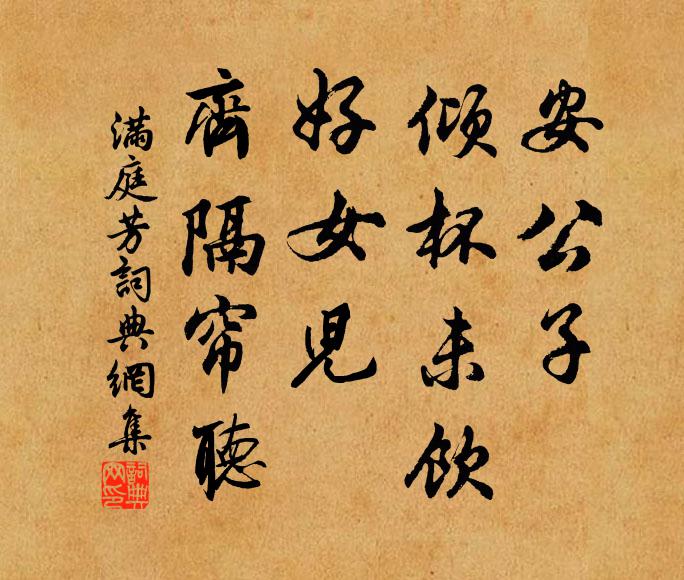 安公子
倾杯未饮
好女児
齊隔帘聽
滿庭芳詞典網集
詞典網印